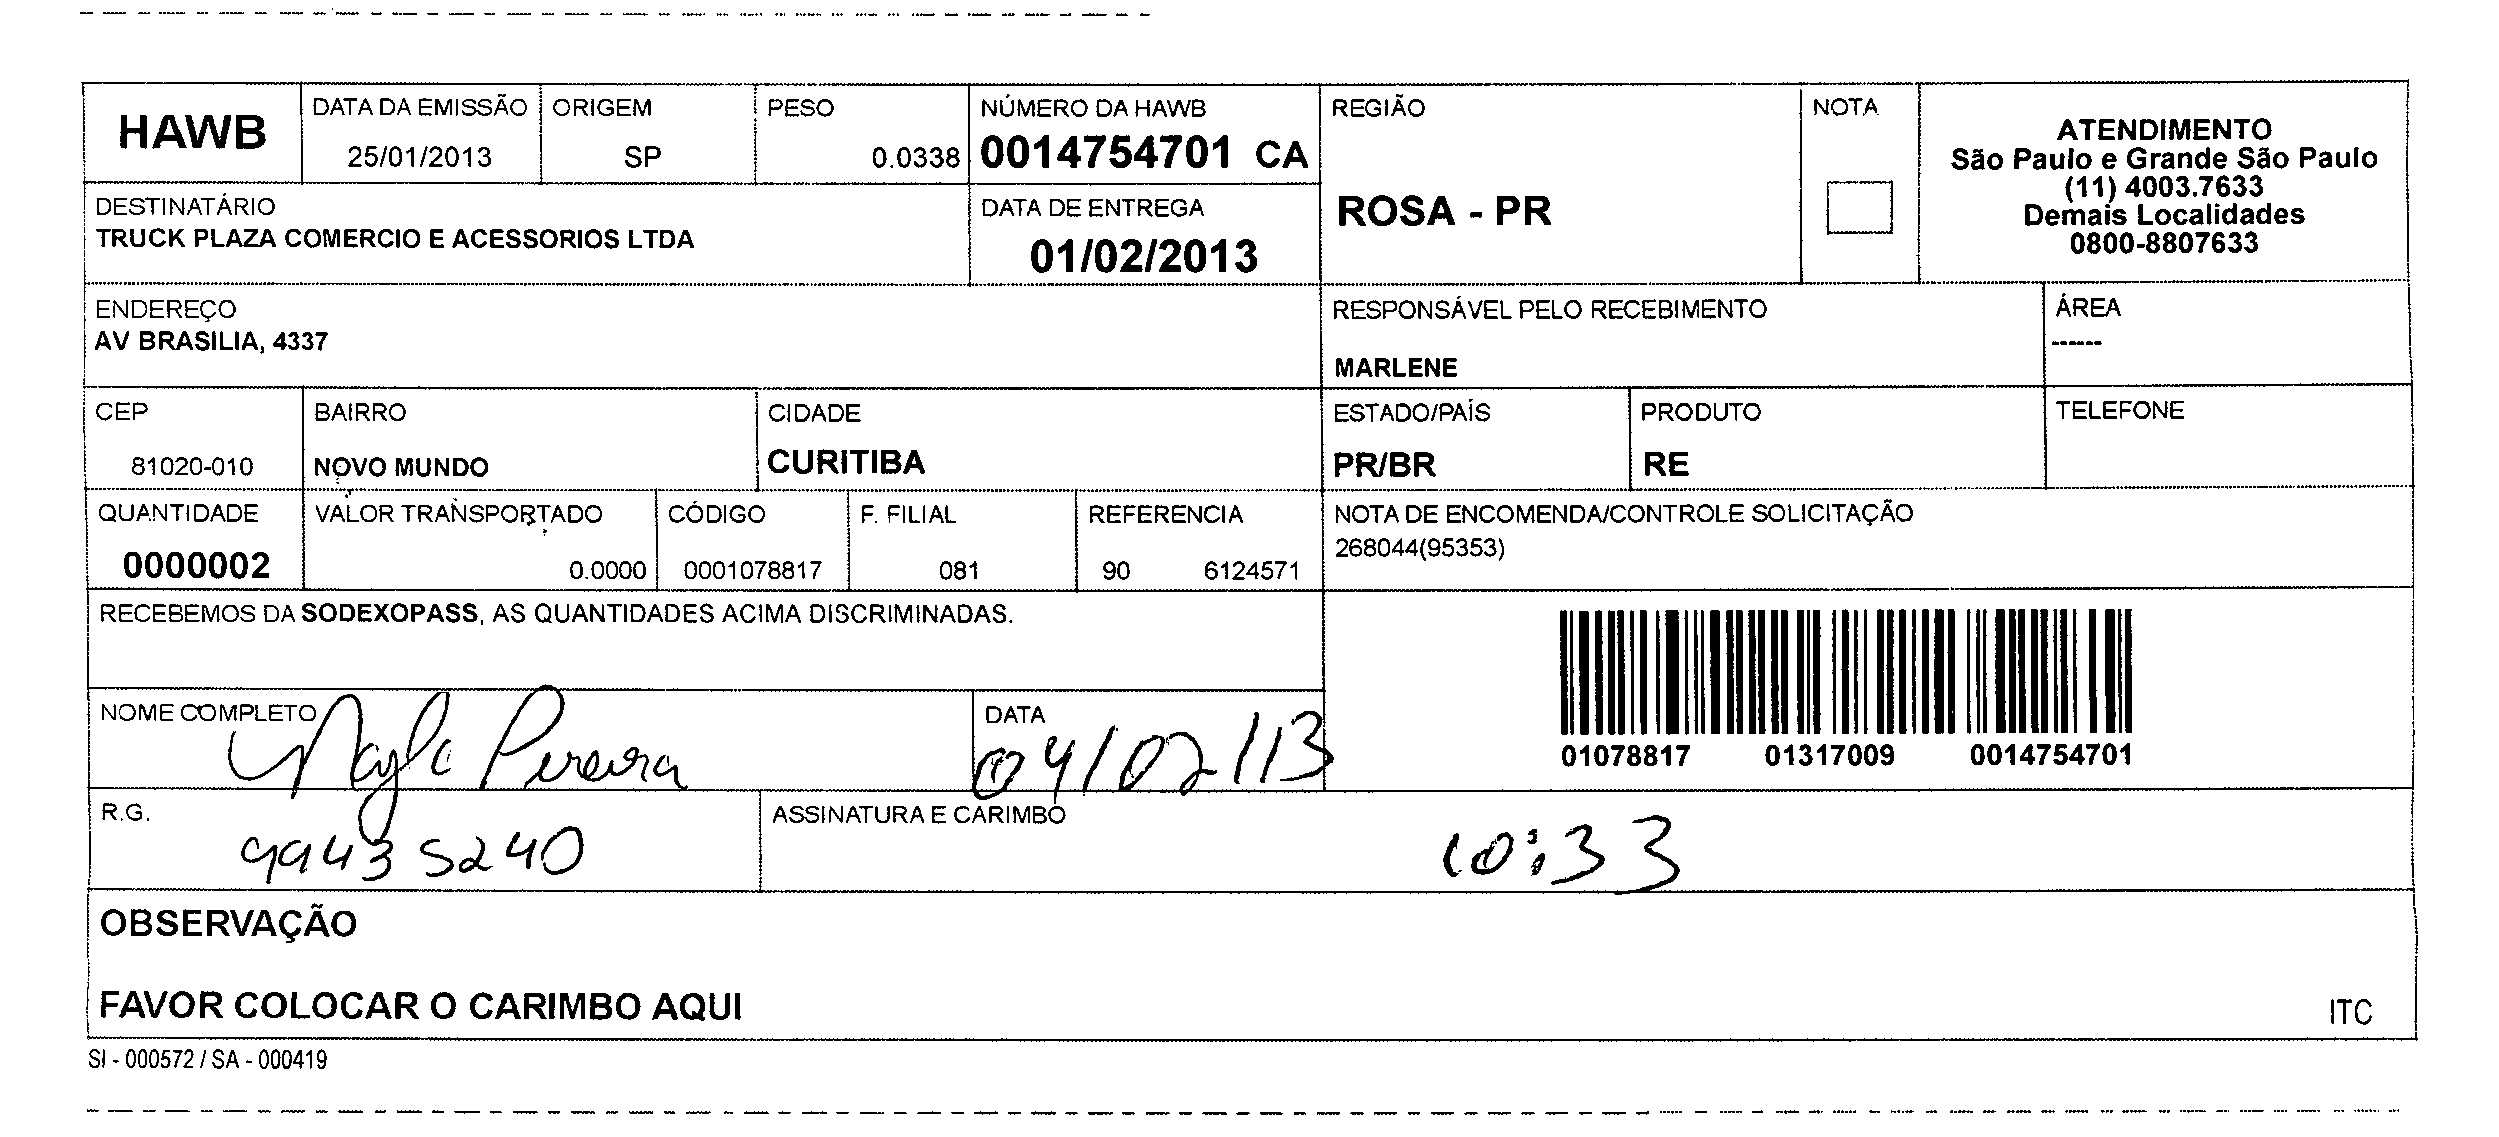 HAWB
DATA DA EMISSÃO
25/01/2013
ORIGEM
SP
PESO
0.0338
NÚMERO DA HAWB
0014754701 CA
REGIÃO
ROSA - PR
NOTA
ATENDIMENTO
São Paulo e Grande São Paulo
(11) 4003.7633
Demais Localidades
0800-8807633
DESTINATÁRIO
TRUCK PLAZA COMERCIO E ACESSORIOS LTDA
DATA DE ENTREGA
01/02/2013
ENDEREÇO
AV BRASILIA, 4337
RESPONSÁVEL PELO RECEBIMENTO
MARLENE
ÁREA
------
CEP
81020-010
BAIRRO
NOVO MUNDO
CIDADE
CURITIBA
ESTADO/PAÍS
PR/BR
PRODUTO
RE
TELEFONE
QUANTIDADE
0000002
VALOR TRANSPORTADO
0.0000
CÓDIGO
0001078817
F. FILIAL
081
REFERENCIA
90 6124571
NOTA DE ENCOMENDA/CONTROLE SOLICITAÇÃO
268044(95353)
RECEBEMOS DA SODEXOPASS, AS QUANTIDADES ACIMA DISCRIMINADAS.
01078817 01317009 0014754701
NOME COMPLETO
Nayla Pereira
DATA
04/02/13
R.G.
99435240
ASSINATURA E CARIMBO
10:33
OBSERVAÇÃO
FAVOR COLOCAR O CARIMBO AQUI
ITC
SI - 000572 / SA - 000419